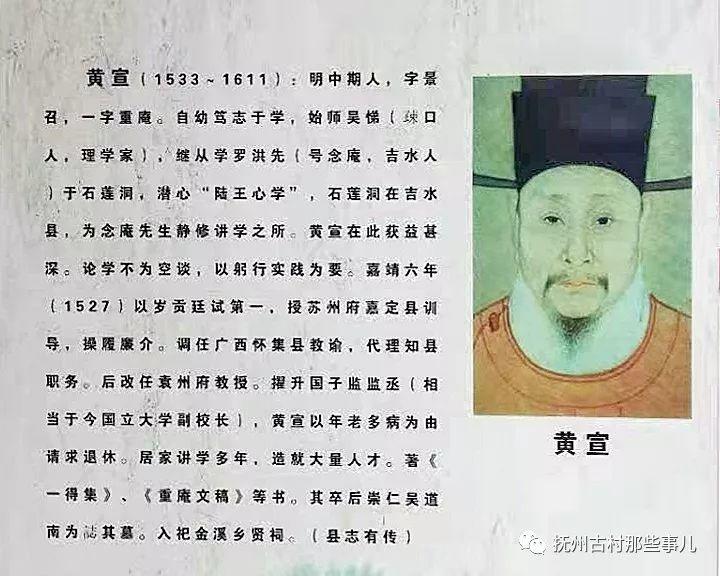 黄宣（1533～1611）：明中期人，字景
召，一字重庵。自幼笃志于学，始师吴悌（疎口
人，理学家），继从学罗洪先（号念庵，吉水人
）于石莲洞，潜心“陆王心学”，石莲洞在吉水
县，为念庵先生静修讲学之所。黄宣在此获益甚
深。论学不为空谈，以躬行实践为要。嘉靖六年
（1527）以岁贡廷试第一，授苏州府嘉定县训
导，操履廉介。调任广西怀集县教谕，代理知县
职务。后改任袁州府教授。擢升国子监监丞（相
当于今国立大学副校长），黄宣以年老多病为由
请求退休。居家讲学多年，造就大量人才。著《
一得集》、《重庵文稿》等书。其卒后崇仁吴道
南为誌其墓。入祀金溪乡贤祠。（县志有传）
黄宣
抚州古村那些事儿